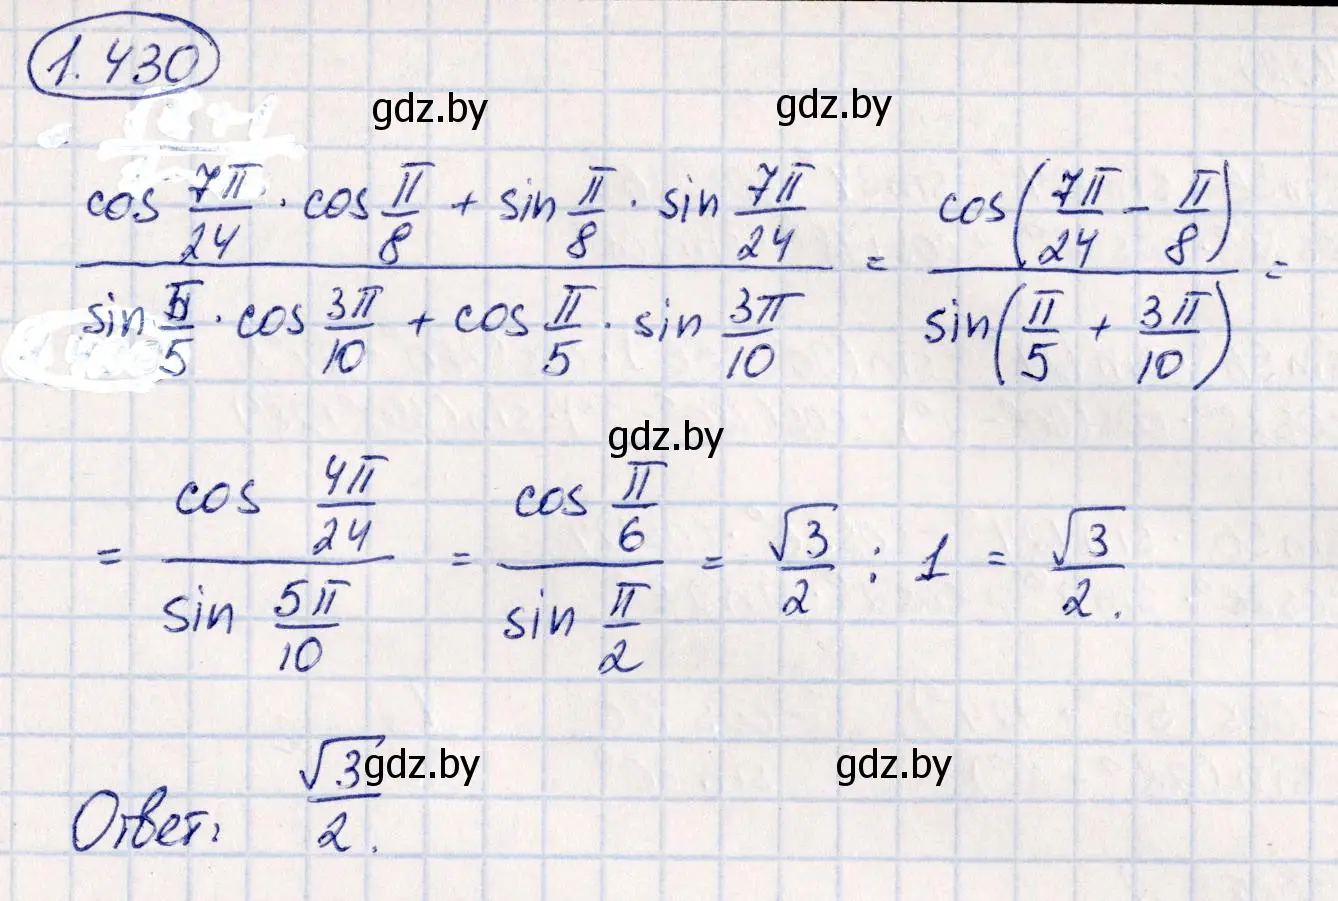 1.430
gdz.by gdz.by
(cos 7π/24 · cos π/8 + sin π/8 · sin 7π/24) / (sin π/5 · cos 3π/10 + cos π/5 · sin 3π/10) = cos(7π/24 − π/8) / sin(π/5 + 3π/10) =
gdz.by
= cos 4π/24 / sin 5π/10 = cos π/6 / sin π/2 = √3/2 : 1 = √3/2.
gdz.by gdz.by
Ответ: √3/2.